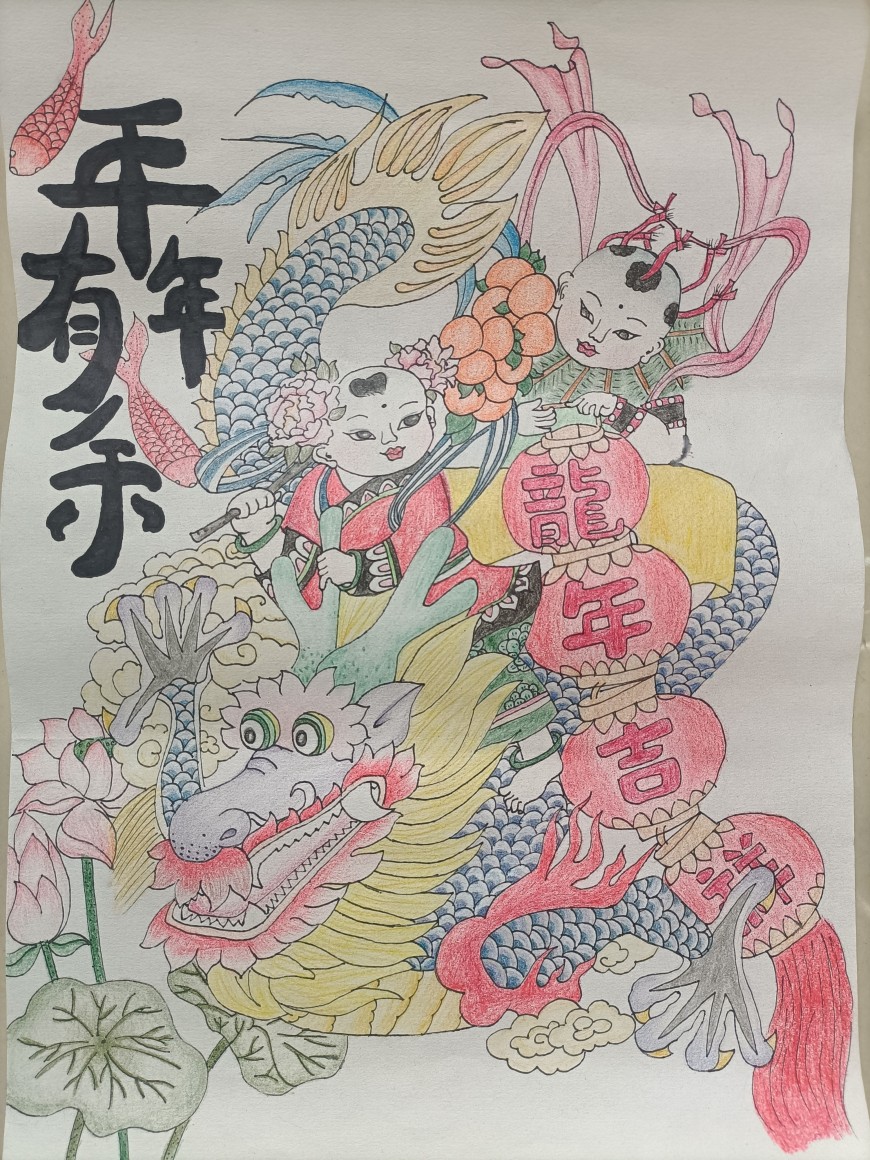 年年有余
龍年吉祥